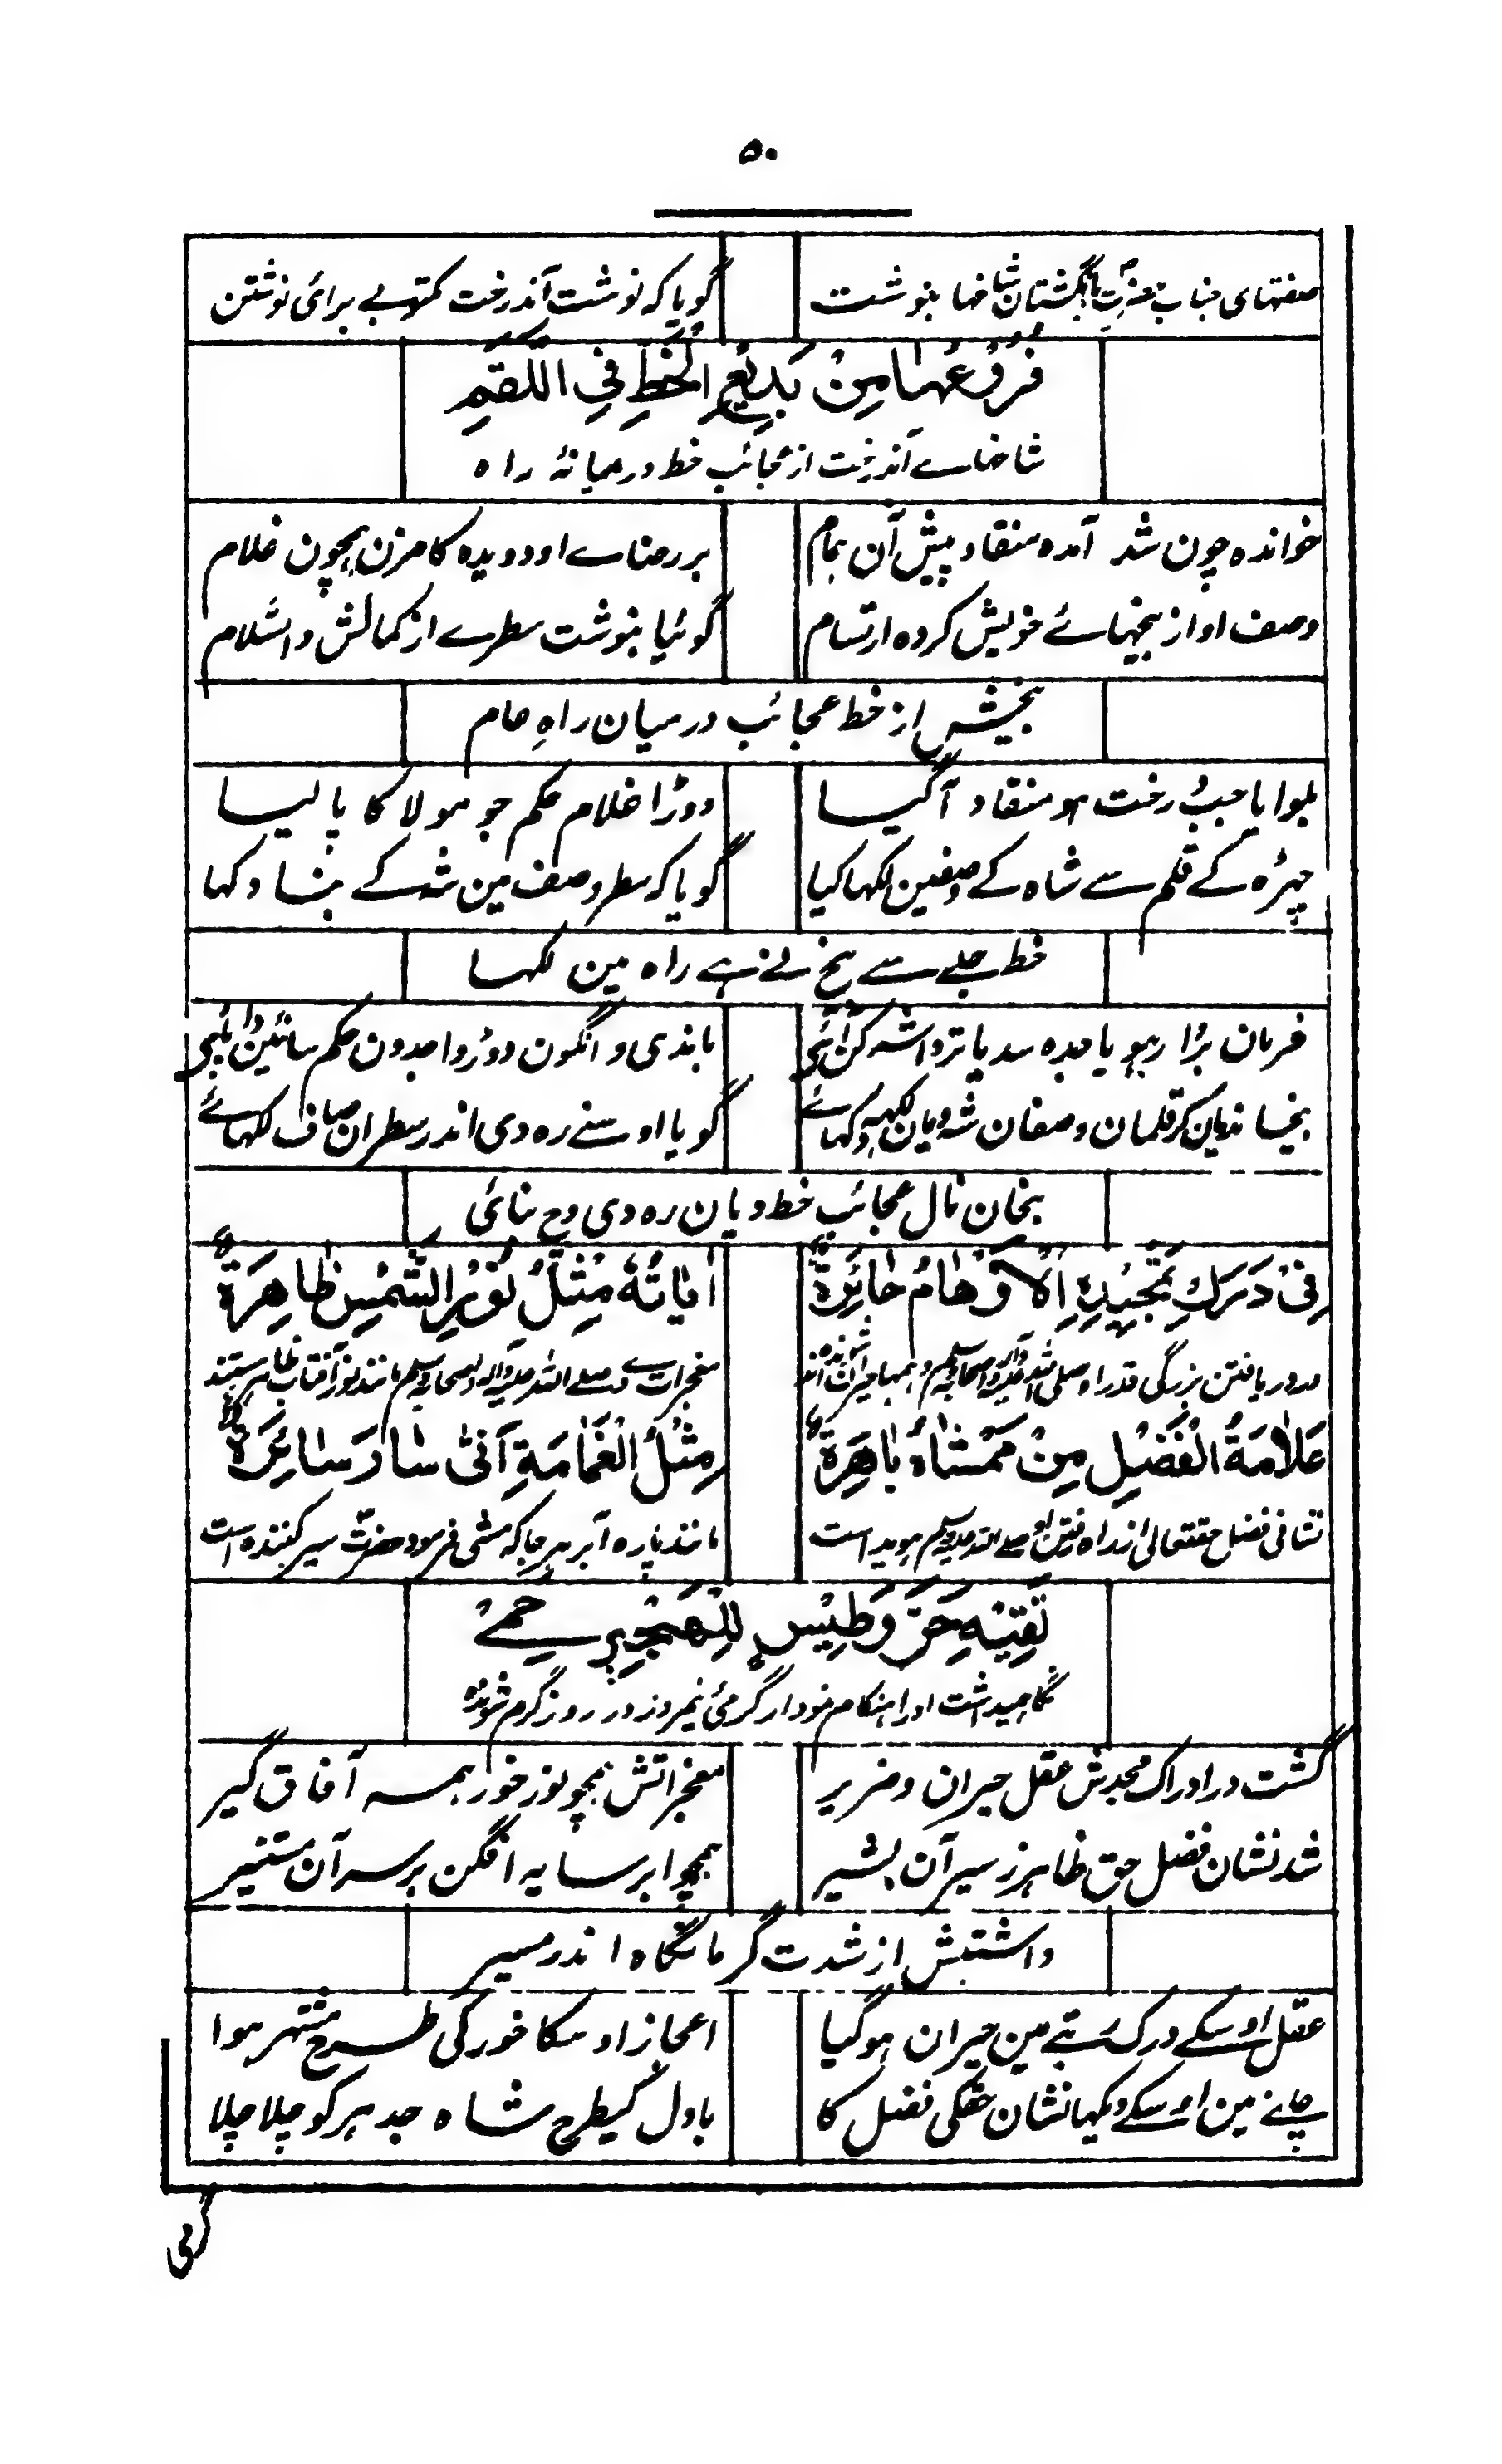 ۵۰
صفتهای جناب حضرت بانگشتان شاخها بنوشت
گویا که نوشت آندرخت مکتوبے برائ نوشتن
فُرُوْعُهَا مِنْ بَدِيْعِ الْخَطِّ فِي اللَّقَمِ
شاخهاے آندرخت از عجائب خط در میانۂ راه
خوانده چون شد آمده منقاد پیش آن ہمام
بر رضاے او دویده کامزن ہمچون غلام
وصف او از بیخہائے خویش کرده ارتسام
گوئیا بنوشت سطرے از کمالش والسّلام
بخیش از خط عجائب درمیان راهِ عام
بلوایا جب درخت ہو منقاد آگیا
دوڑا غلام حکم جو مولا کا پا لیا
چہڑه کے قلم سے شاه کے وصفین لکہا کیا
گویا کہ سطر وصف مین شہ کے بنا دکہا
خط جلے سے بیخ نے ہے راه مین لکہا
فرمان بڑا رہو یا
باندی وانگون دوڑ وا بدون حکم سائین
گویا اوسنے ره دی اندر سطران صاف لکہائے
بیخان نال عجائب خط دیان ره دی وچ بنائی
فِيْ دَرَكِ تَمْجِيْدِهِ الْاَوْهَامُ حَائِرَةٌ
اٰيَاتُهٗ مِثْلُ نُوْرِ الشَّمْسِ ظَاهِرَةٌ
در دریافتن بزرگی قدر او صلی الله علیہ وآلہ واصحابہ وسلم وہمہا حیران شونده اند
معجزات وے صلے الله علیہ وآلہ واصحابہ وسلم مانند نور آفتاب ظاہر ہستند
عَلَامَةُ الْفَضْلِ مِنْ مَمْشَاهُ بَاهِرَةٌ
مِثْلُ الْغَمَامَةِ اَنّٰى سَارَ سَائِرَةٌ
نشانی فضل حقتعالی از راه رفتن او صلے الله علیہ وسلم ہویدا است
مانند پاره ابر ہر جا کہ مشی فرمود حضرت سیر کننده است
تَقِيْهِ حَرَّ وَطِيْسٍ لِلْهَجِيْرِ حَمِيْ
نگاہمیداشت او را ہنگام نمودار گرمئ نیمروز در روز گرم شونده
گشت در ادراک مجدش عقل حیران و ضریر
معجزاتش ہمچو نور خور ہمہ آفاق گیر
شد نشان فضل حق ظاہر ز سیر آن بشیر
ہمچو ابر سایہ افگن بر سر آن مستنیر
داشتیش از شدت گرما نگاه اندر مسیر
عقل اوسکے درک رتبے مین حیران ہوگیا
اعجاز اوسکا خور کی طرح مشتہر ہوا
چلنے مین اوسکے دیکہا نشان حقکی فضل کا
بادل کیطرح شاه جدہر کو چلا چلا
گرمی